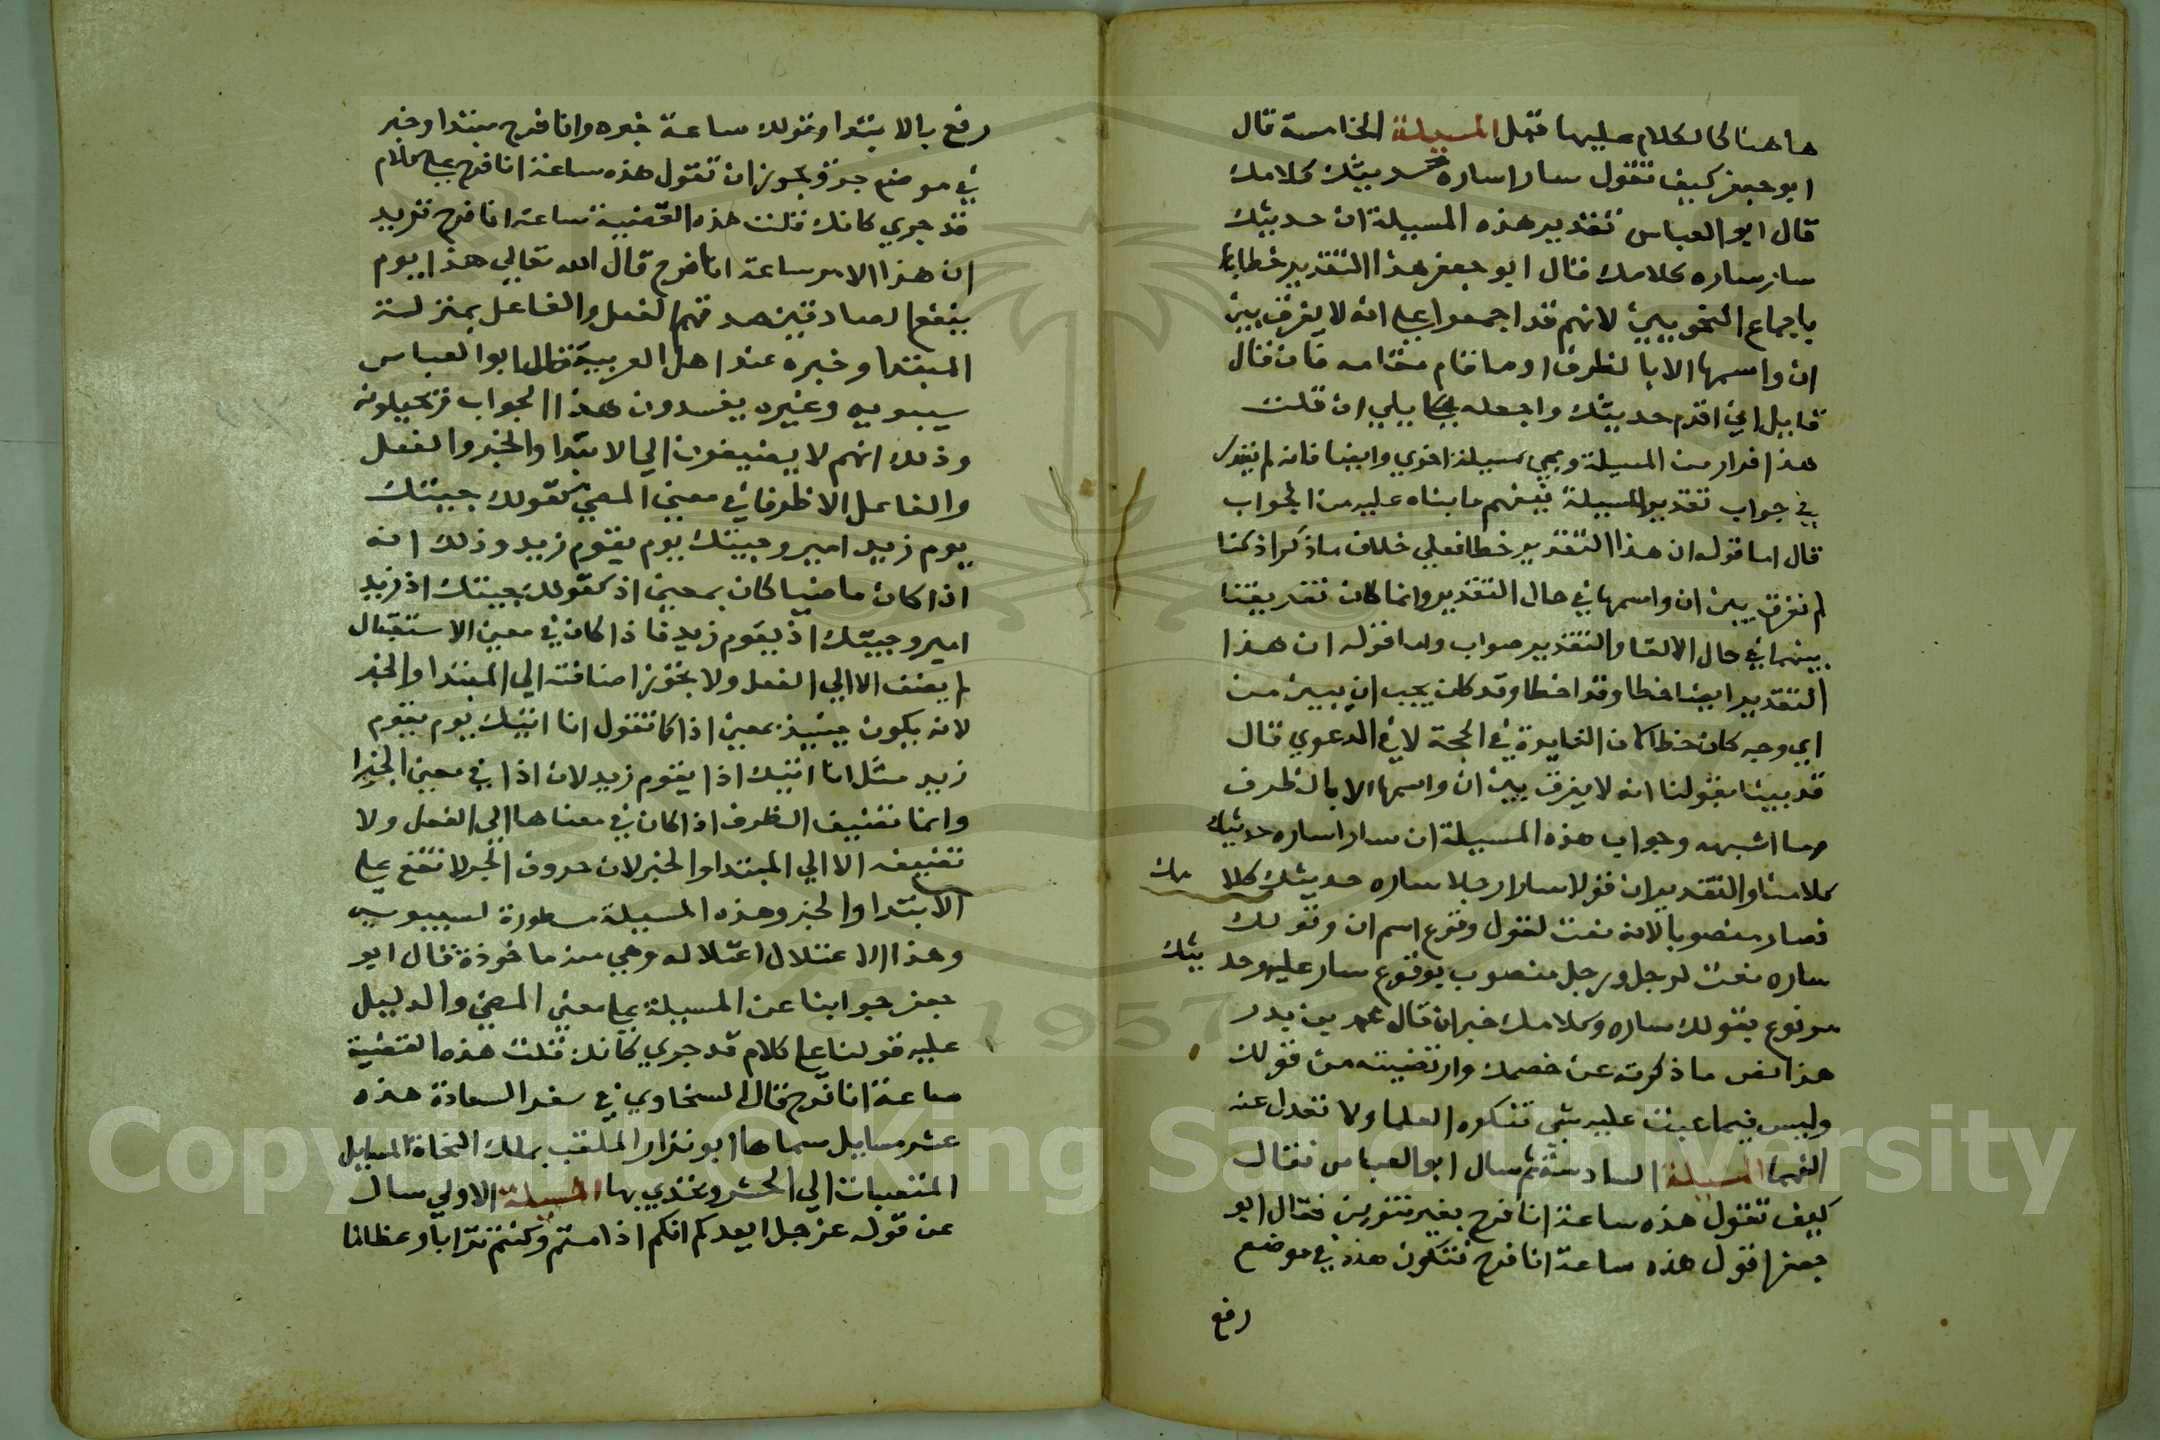 هاهنا كالكلام عليها قبل المسيلة الخامسة قال
ابو جعفر كيف تقول سار اساره حديثك كلامك
قال ابو العباس تقدير هذه المسيلة ان حديثك
سار ساره كلامك فقال ابو جعفر هذا التقدير خطا
باجماع النحويين لانهم قد اجمعوا علي انه لا يفرق بين
ان واسمها الا بالظرف او ما قام مقامه فان قال
قايل اني اقدم حديثك واجعله يلي ان قلت
هذا فرار من المسيلة ومجي بمسيلة اخري وايضا فانه لم يقدر
في جواب تقدير المسيلة يفهم ما بناه عليه من الجواب
قال اما قوله ان هذا التقدير خطا فعلي خلاف ما ذكر اذ كنا
لم نفرق بين ان واسمها في حال التقدير وانما كان تفريقنا
بينهما في حال الالقا والتقدير صواب واما قوله ان هذا
التقدير ايضا خطا وقد اخطا وقد كان يجب ان يبين من
اي وجه كان خطا لان الفايدة في الحجة لا في الدعوي قال
قد بينا بقولنا انه لا يفرق بين ان واسمها الا بالظرف
وما اشبهه وجواب هذه المسيلة ان سارا ساره حديثك
كلامنا والتقدير ان قولا سارا رجلا ساره حديثك كلا مك
فصار منصوبا لانه نعت لقول وقوع اسم ان وقولك
ساره نعت لرجل ورجل منصوب بوقوع سار عليه وحد يثك
مرفوع بقولك ساره وكلامك خبر ان قال محمد بن بدر
هذا نص ما ذكرته عن خصمك وارتضيته من قولك
وليس فيما عبت عليه شي تنكره العلما ولا تعدل عنه
الفهما المسيلة السادسة ثم سال ابو العباس فقال
كيف تقول هذه ساعة انا فرح بغير تنوين فقال ابو
جعفر اقول هذه ساعة انا فرح فتكون هذه في موضع
رفع
رفع بالابتدا وقولك ساعة خبره وانا فرح مبتدا وخبر
في موضع جر ويجوز ان تقول هذه ساعة انا فرح علي كلام
قد جري كانك قلت هذه القضية ساعة انا فرح تريد
ان هذا الامر ساعة انا فرح قال الله تعالي هذا يوم
ينفع الصادقين صدقهم الفعل والفاعل بمنزلة
المبتدا وخبره عند اهل العربية فقال ابو العباس
سيبويه وغيره يفسدون هذا الجواب
وذلك انهم لا يضيفون الي الابتدا والخبر والفعل
والفاعل الا ظرفا في معني المضي كقولك جيتك
يوم زيد امير وجيتك يوم يقوم زيد وذلك انه
اذا كان ماضيا كان بمعني اذ كقولك جيتك اذ زيد
امير وجيتك اذ يقوم زيد فاذا كان في معني الاستقبال
لم يضف الا الي الفعل ولا يجوز اضافته الي المبتدا والخبر
لانه يكون حينيذ بمعني اذا كما تقول انا اتيك يوم يقوم
زيد مثل انا اتيك اذا يقوم زيد لان اذا في معني الجزا
وانما تضيف الظرف اذا كان في معناها الي الفعل ولا
تضيفه الا الي المبتدا والخبر لان حروف الجر لا تقع علي
الابتدا والخبر وهذه المسيلة مسطورة لسيبويه
وهذا الاعتلال اعتلاله وهي منه ماخوذة فقال ابو
جعفر جوابنا عن المسيلة علي معني المضي والدليل
عليه قولنا علي كلام قد جري كانك قلت هذه القضية
ساعة انا فرح فقال السخاوي في سفر السعادة هذه
عشر مسايل سماها ابو نزار الملقب بملك النحاة المسايل
المتعبات الي الحشر وتحدي بها المسيلة الاولي سال
عن قوله عز جل ايعدكم انكم اذا متم وكنتم ترابا وعظاما